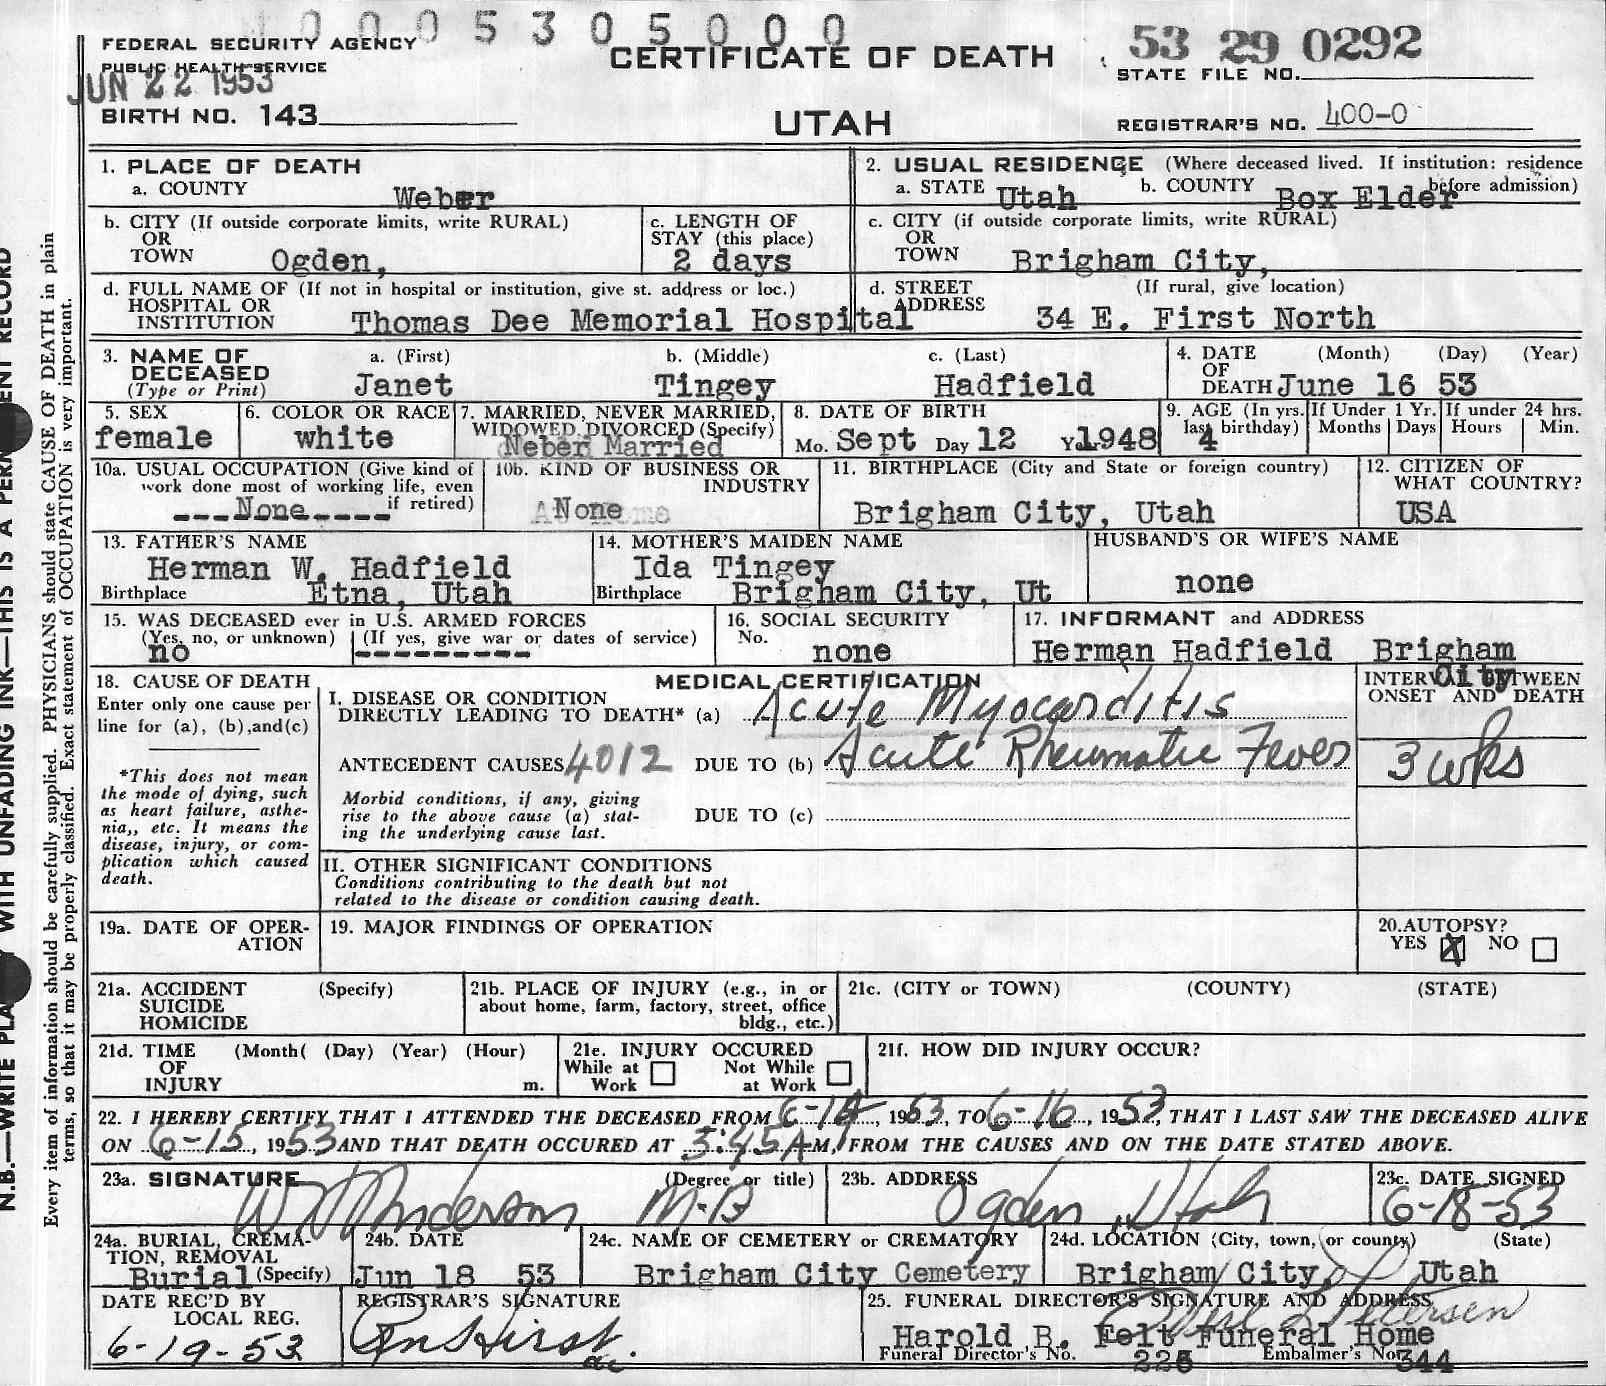 0005305000
FEDERAL SECURITY AGENCY
PUBLIC HEALTH SERVICE
JUN 22 1953
BIRTH NO. 143
CERTIFICATE OF DEATH
UTAH
53 29 0292
STATE FILE NO.
REGISTRAR'S NO. 400-0
N.B.—WRITE PLA WITH UNFADING INK—THIS IS A PERM ENT RECORD
Every item of information should be carefully supplied. PHYSICIANS should state CAUSE OF DEATH in plain
terms, so that it may be properly classified. Exact statement of OCCUPATION is very important.
1. PLACE OF DEATH
a. COUNTY Weber
2. USUAL RESIDENCE (Where deceased lived. If institution: residence
before admission)
a. STATE Utah b. COUNTY Box Elder
b. CITY (If outside corporate limits, write RURAL)
OR
TOWN Ogden,
c. LENGTH OF
STAY (this place)
2 days
c. CITY (if outside corporate limits, write RURAL)
OR
TOWN Brigham City,
d. FULL NAME OF (If not in hospital or institution, give st. address or loc.)
HOSPITAL OR
INSTITUTION Thomas Dee Memorial Hospital
d. STREET (If rural, give location)
ADDRESS 34 E. First North
3. NAME OF a. (First) b. (Middle) c. (Last)
DECEASED
(Type or Print) Janet Tingey Hadfield
4. DATE (Month) (Day) (Year)
OF
DEATH June 16 53
5. SEX
female
6. COLOR OR RACE
white
7. MARRIED, NEVER MARRIED,
WIDOWED, DIVORCED (Specify)
Neber Married
8. DATE OF BIRTH
Mo. Sept Day 12 Year 1948
9. AGE (In yrs.
last birthday)
4
If Under 1 Yr.
Months Days
If under 24 hrs.
Hours Min.
10a. USUAL OCCUPATION (Give kind of
work done most of working life, even
if retired)
---None-----
10b. KIND OF BUSINESS OR
INDUSTRY
None
11. BIRTHPLACE (City and State or foreign country)
Brigham City, Utah
12. CITIZEN OF
WHAT COUNTRY?
USA
13. FATHER'S NAME
Herman W. Hadfield
Birthplace Etna, Utah
14. MOTHER'S MAIDEN NAME
Ida Tingey
Birthplace Brigham City, Ut
HUSBAND'S OR WIFE'S NAME
none
15. WAS DECEASED ever in U.S. ARMED FORCES
(Yes, no, or unknown) (If yes, give war or dates of service)
no ----------
16. SOCIAL SECURITY
No.
none
17. INFORMANT and ADDRESS
Herman Hadfield Brigham
City
18. CAUSE OF DEATH
Enter only one cause per
line for (a), (b),and(c)
*This does not mean
the mode of dying, such
as heart failure, asthe-
nia,, etc. It means the
disease, injury, or com-
plication which caused
death.
MEDICAL CERTIFICATION
I. DISEASE OR CONDITION
DIRECTLY LEADING TO DEATH* (a) Acute Myocarditis
ANTECEDENT CAUSES 4012 DUE TO (b) Acute Rheumatic Fever
Morbid conditions, if any, giving
rise to the above cause (a) stat-
ing the underlying cause last.
DUE TO (c)
INTERVAL BETWEEN
ONSET AND DEATH
3 wks
II. OTHER SIGNIFICANT CONDITIONS
Conditions contributing to the death but not
related to the disease or condition causing death.
19a. DATE OF OPER-
ATION
19. MAJOR FINDINGS OF OPERATION
20.AUTOPSY?
YES X NO
21a. ACCIDENT (Specify)
SUICIDE
HOMICIDE
21b. PLACE OF INJURY (e.g., in or
about home, farm, factory, street, office
bldg., etc.)
21c. (CITY or TOWN) (COUNTY) (STATE)
21d. TIME (Month( (Day) (Year) (Hour)
OF
INJURY m.
21e. INJURY OCCURED
While at Not While
Work at Work
21f. HOW DID INJURY OCCUR?
22. I HEREBY CERTIFY THAT I ATTENDED THE DECEASED FROM 6-14, 1953, TO 6-16, 1953, THAT I LAST SAW THE DECEASED ALIVE
ON 6-15, 1953 AND THAT DEATH OCCURED AT 3:45 AM, FROM THE CAUSES AND ON THE DATE STATED ABOVE.
23a. SIGNATURE (Degree or title)
Anderson M.D
23b. ADDRESS
Ogden, Utah
23c. DATE SIGNED
6-18-53
24a. BURIAL, CREMA-
TION, REMOVAL
Burial (Specify)
24b. DATE
Jun 18 53
24c. NAME OF CEMETERY or CREMATORY
Brigham City Cemetery
24d. LOCATION (City, town, or county) (State)
Brigham City, Utah
DATE REC'D BY
LOCAL REG.
6-19-53
REGISTRAR'S SIGNATURE
Hirst
25. FUNERAL DIRECTOR'S SIGNATURE AND ADDRESS
Harold B. Felt Funeral Home
Funeral Director's No. 226 Embalmer's No. 344